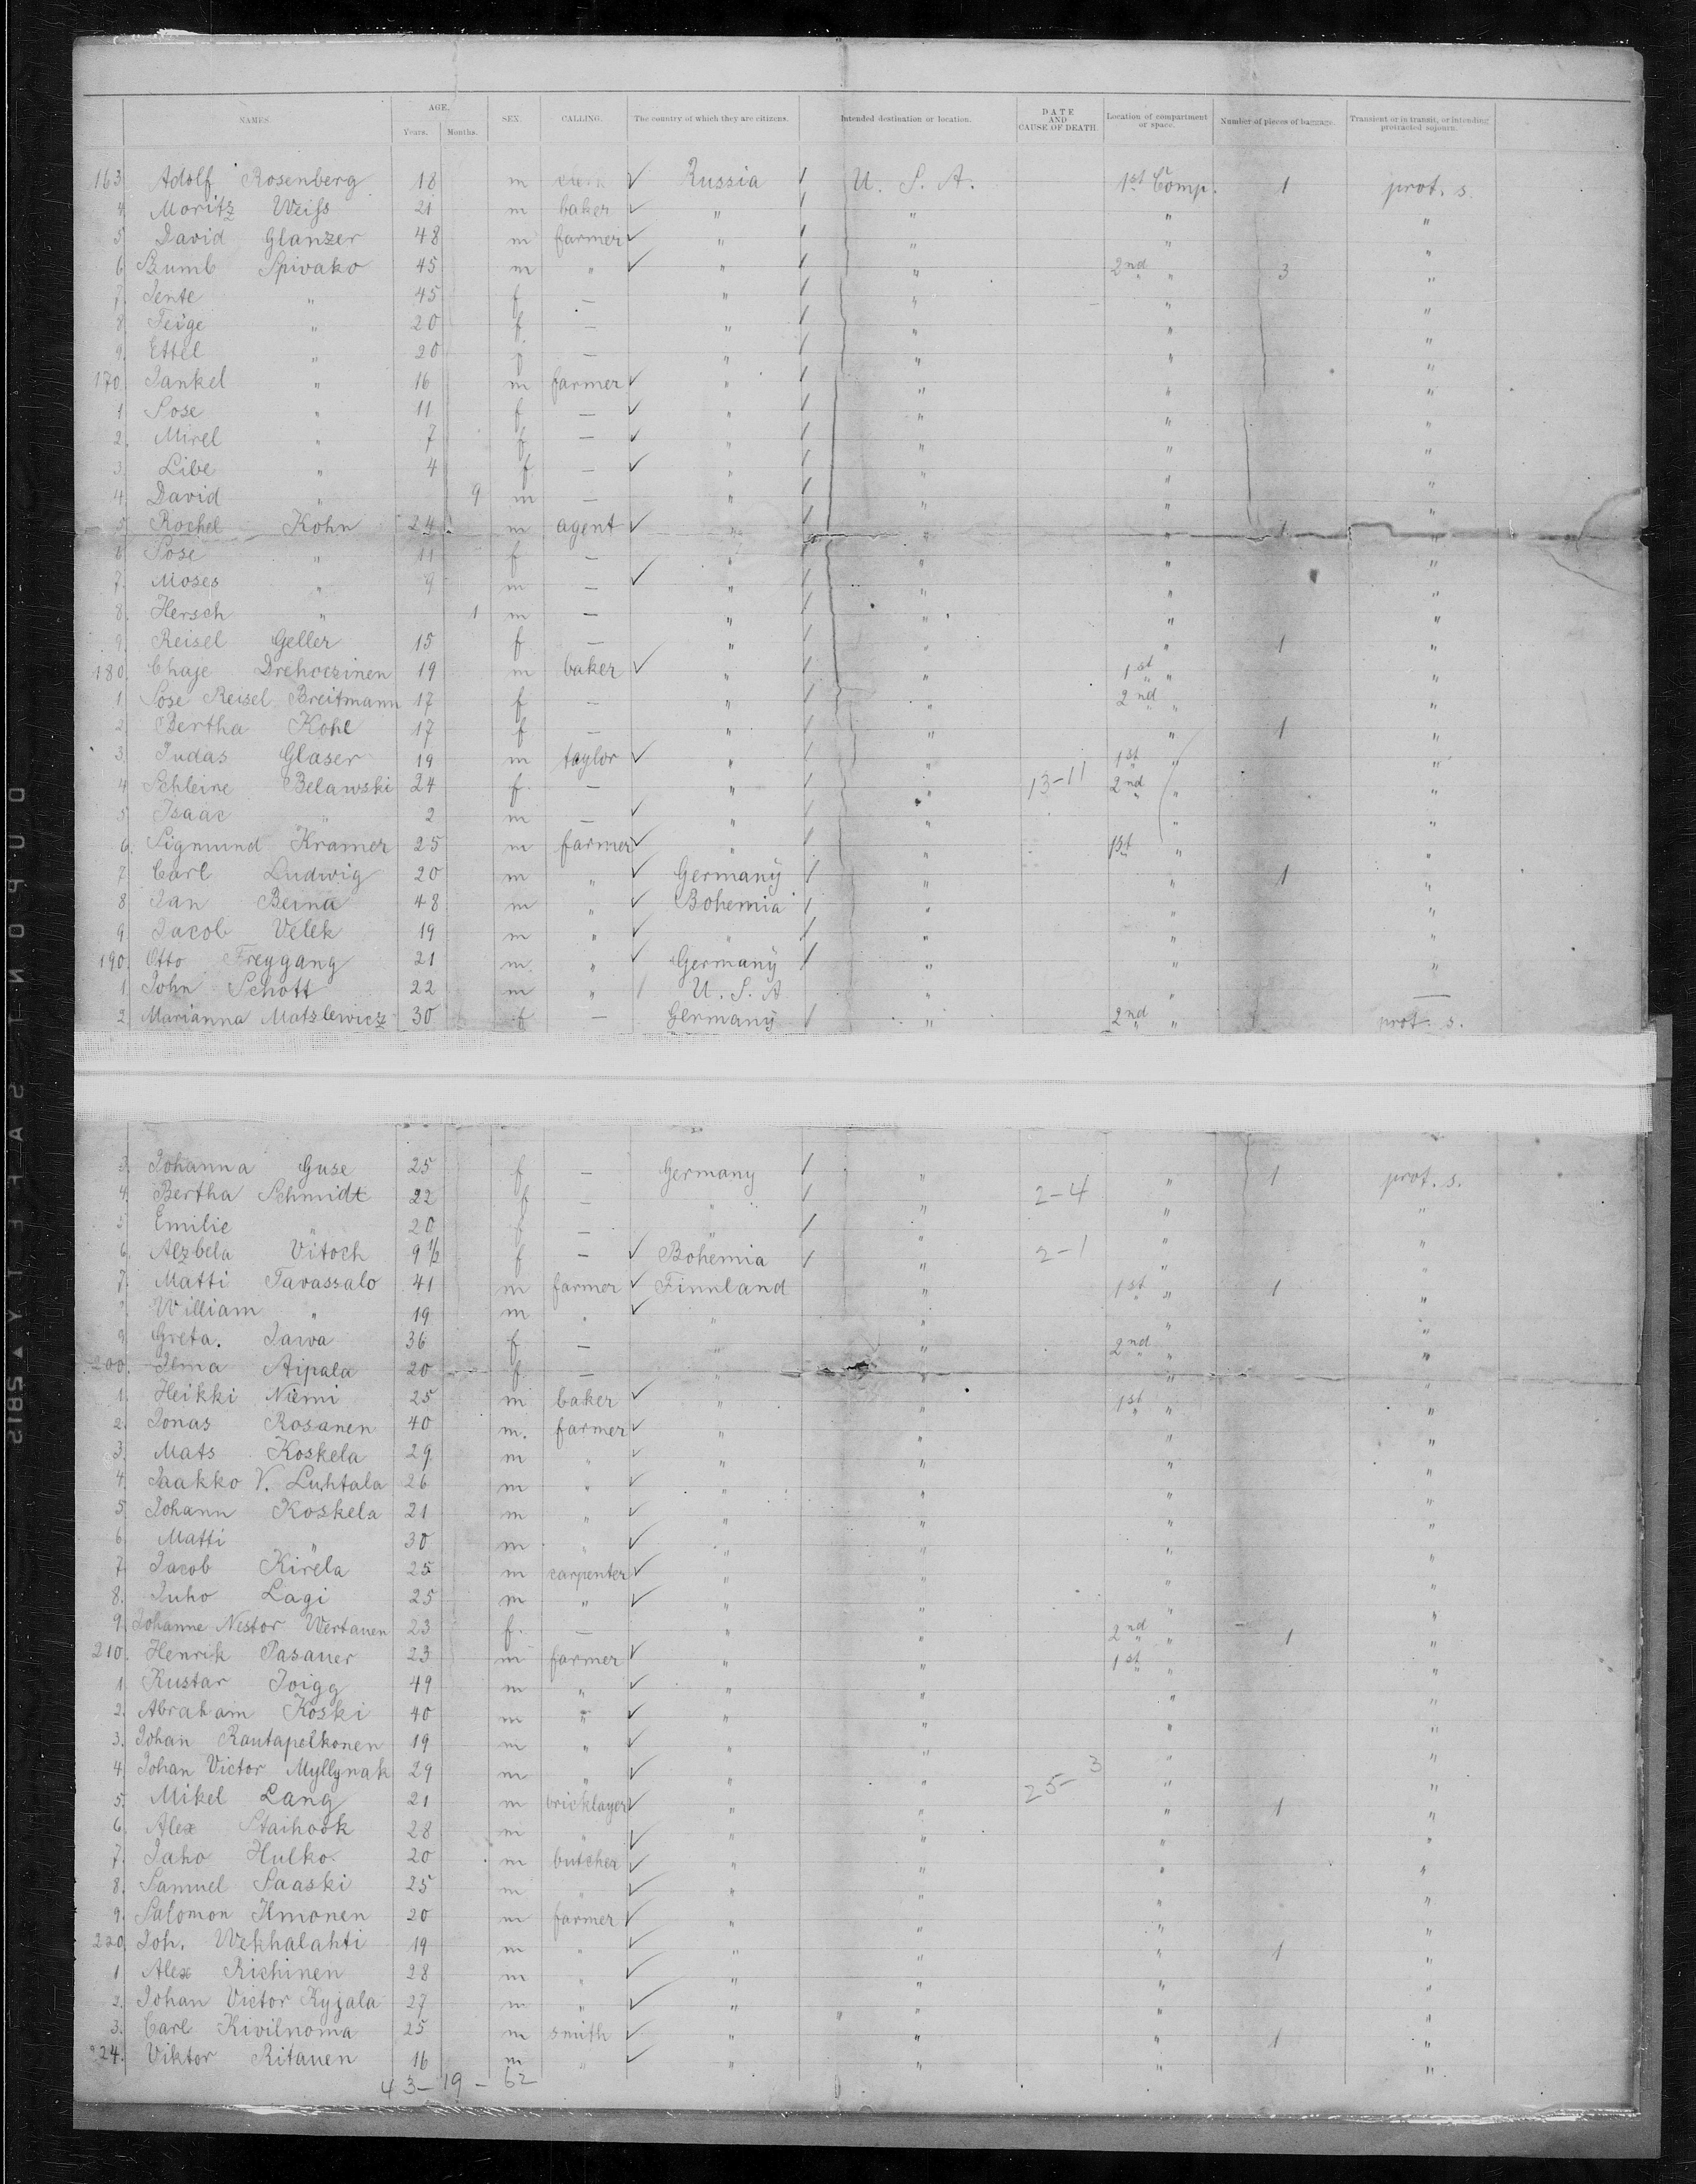 NAMES. AGE. Years. Months. SEX. CALLING. The country of which they are citizens. Intended destination or location. DATE AND CAUSE OF DEATH. Location of compartment or space. Number of pieces of baggage. Transient or in transit, or intending protracted sojourn.
163 Adolf Rosenberg 18 m clerk ✓ Russia / U. S. A. 1st Comp. 1 prot. s.
4 Moritz Weiss 21 m baker ✓ " / " " "
5 David Glanzer 48 m farmer ✓ " / " " "
6 Sumb Spivako 45 m " ✓ " / " 2nd " 3 "
7. Jente " 45 f — " / " " "
8. Feige " 20 f — " / " " "
9. Ettel " 20 f — " / " " "
170. Jankel " 16 m farmer ✓ " / " " "
1 Sose " 11 f — ✓ " / " " "
2. Mirel " 7 f — ✓ " / " " "
3. Libe " 4 f — ✓ " / " " "
4. David " 9 m — " / " " "
5. Rochel Kohn 24 m agent ✓ " / " " 1 "
6 Sose " 11 f — " / " " "
7. Moses " 9 m — ✓ " / " " "
8. Hersch " 1 m — " / " " "
9. Reisel Geller 15 f — " / " " 1 "
180. Chaje Drehoczinen 19 m baker ✓ " / " 1st " "
1 Sose Reisel Breitmann 17 f — " / " 2nd " "
2. Bertha Kohl 17 f — " / " " 1 "
3. Judas Glaser 19 m taylor ✓ " / " 1st " "
4 Schleine Belawski 24 f. — " / " 13-11 2nd " "
5 Isaac " 2 m — ✓ " / " " "
6. Sigmund Kramer 25 m farmer ✓ " / " 1st " "
7 Carl Ludwig 20 m " ✓ Germany / " " 1 "
8 Jan Beina 48 m " ✓ Bohemia / " " "
9 Jacob Velek 19 m " ✓ " / " " "
190. Otto Freygang 21 m. " ✓ Germany / " " "
1 John Schott 22 m " / U. S. A " " —
2. Marianna Matzlewicz 30 f — Germany / " 2nd " prot. s.
3 Johanna Guse 25 f — Germany / " " 1 prot. s.
4. Bertha Schmidt 22 f — " / " 2-4 " "
5 Emilie " 20 f — " / " " "
6. Alzbela Vitoch 9 ½ f — ✓ Bohemia / " 2-1 " "
7. Matti Tavassalo 41 m farmer ✓ Finnland " 1st " 1 "
William " 19 m " ✓ " " " "
9 Greta. Jawa 36 f — " " 2nd " "
200. Ilma Aipala 20 f — " " " "
1. Heikki Niemi 25 m baker ✓ " " 1st " "
2. Jonas Rosanen 40 m. farmer ✓ " " " "
3. Mats Koskela 29 m " ✓ " " " "
4. Jaakko V. Luhtala 26 m " ✓ " " " "
5. Johann Koskela 21 m " ✓ " " " "
6 Matti " 30 m " ✓ " " " "
7 Jacob Kirela 25 m carpenter ✓ " " " "
8. Juho Lagi 25 m " ✓ " " " "
9. Johanne Nestor Wertauen 23 f. — " " 2nd " 1 "
210. Henrik Pasauer 23 m farmer ✓ " " 1st " "
1 Kustar Joigg 49 m " ✓ " " " "
2. Abraham Koski 40 m " ✓ " " " "
3. Johan Rautapelkonen 19 m " ✓ " " " "
4. Johan Victor Myllynak 29 m " ✓ " " 25-3 " "
5. Mikel Lang 21 m bricklayer ✓ " " " 1 "
6. Alex Staihook 28 m " ✓ " " " "
7. Jaho Hulko. 20 m butcher ✓ " " " "
8. Samuel Saaski 25 m " ✓ " " " "
9. Salomon Ilmonen 20 m farmer ✓ " " " "
220 Joh. Wekhalahti 19 m " ✓ " " " 1 "
1 Alex Richinen 28 m " ✓ " " " "
2. Johan Victor Kyjala 27 m " ✓ " " " "
3. Carl Kivilnoma 25 m smith ✓ " " " 1 "
224. Viktor Ritauen 16 m " ✓ " " " "
43-19-62